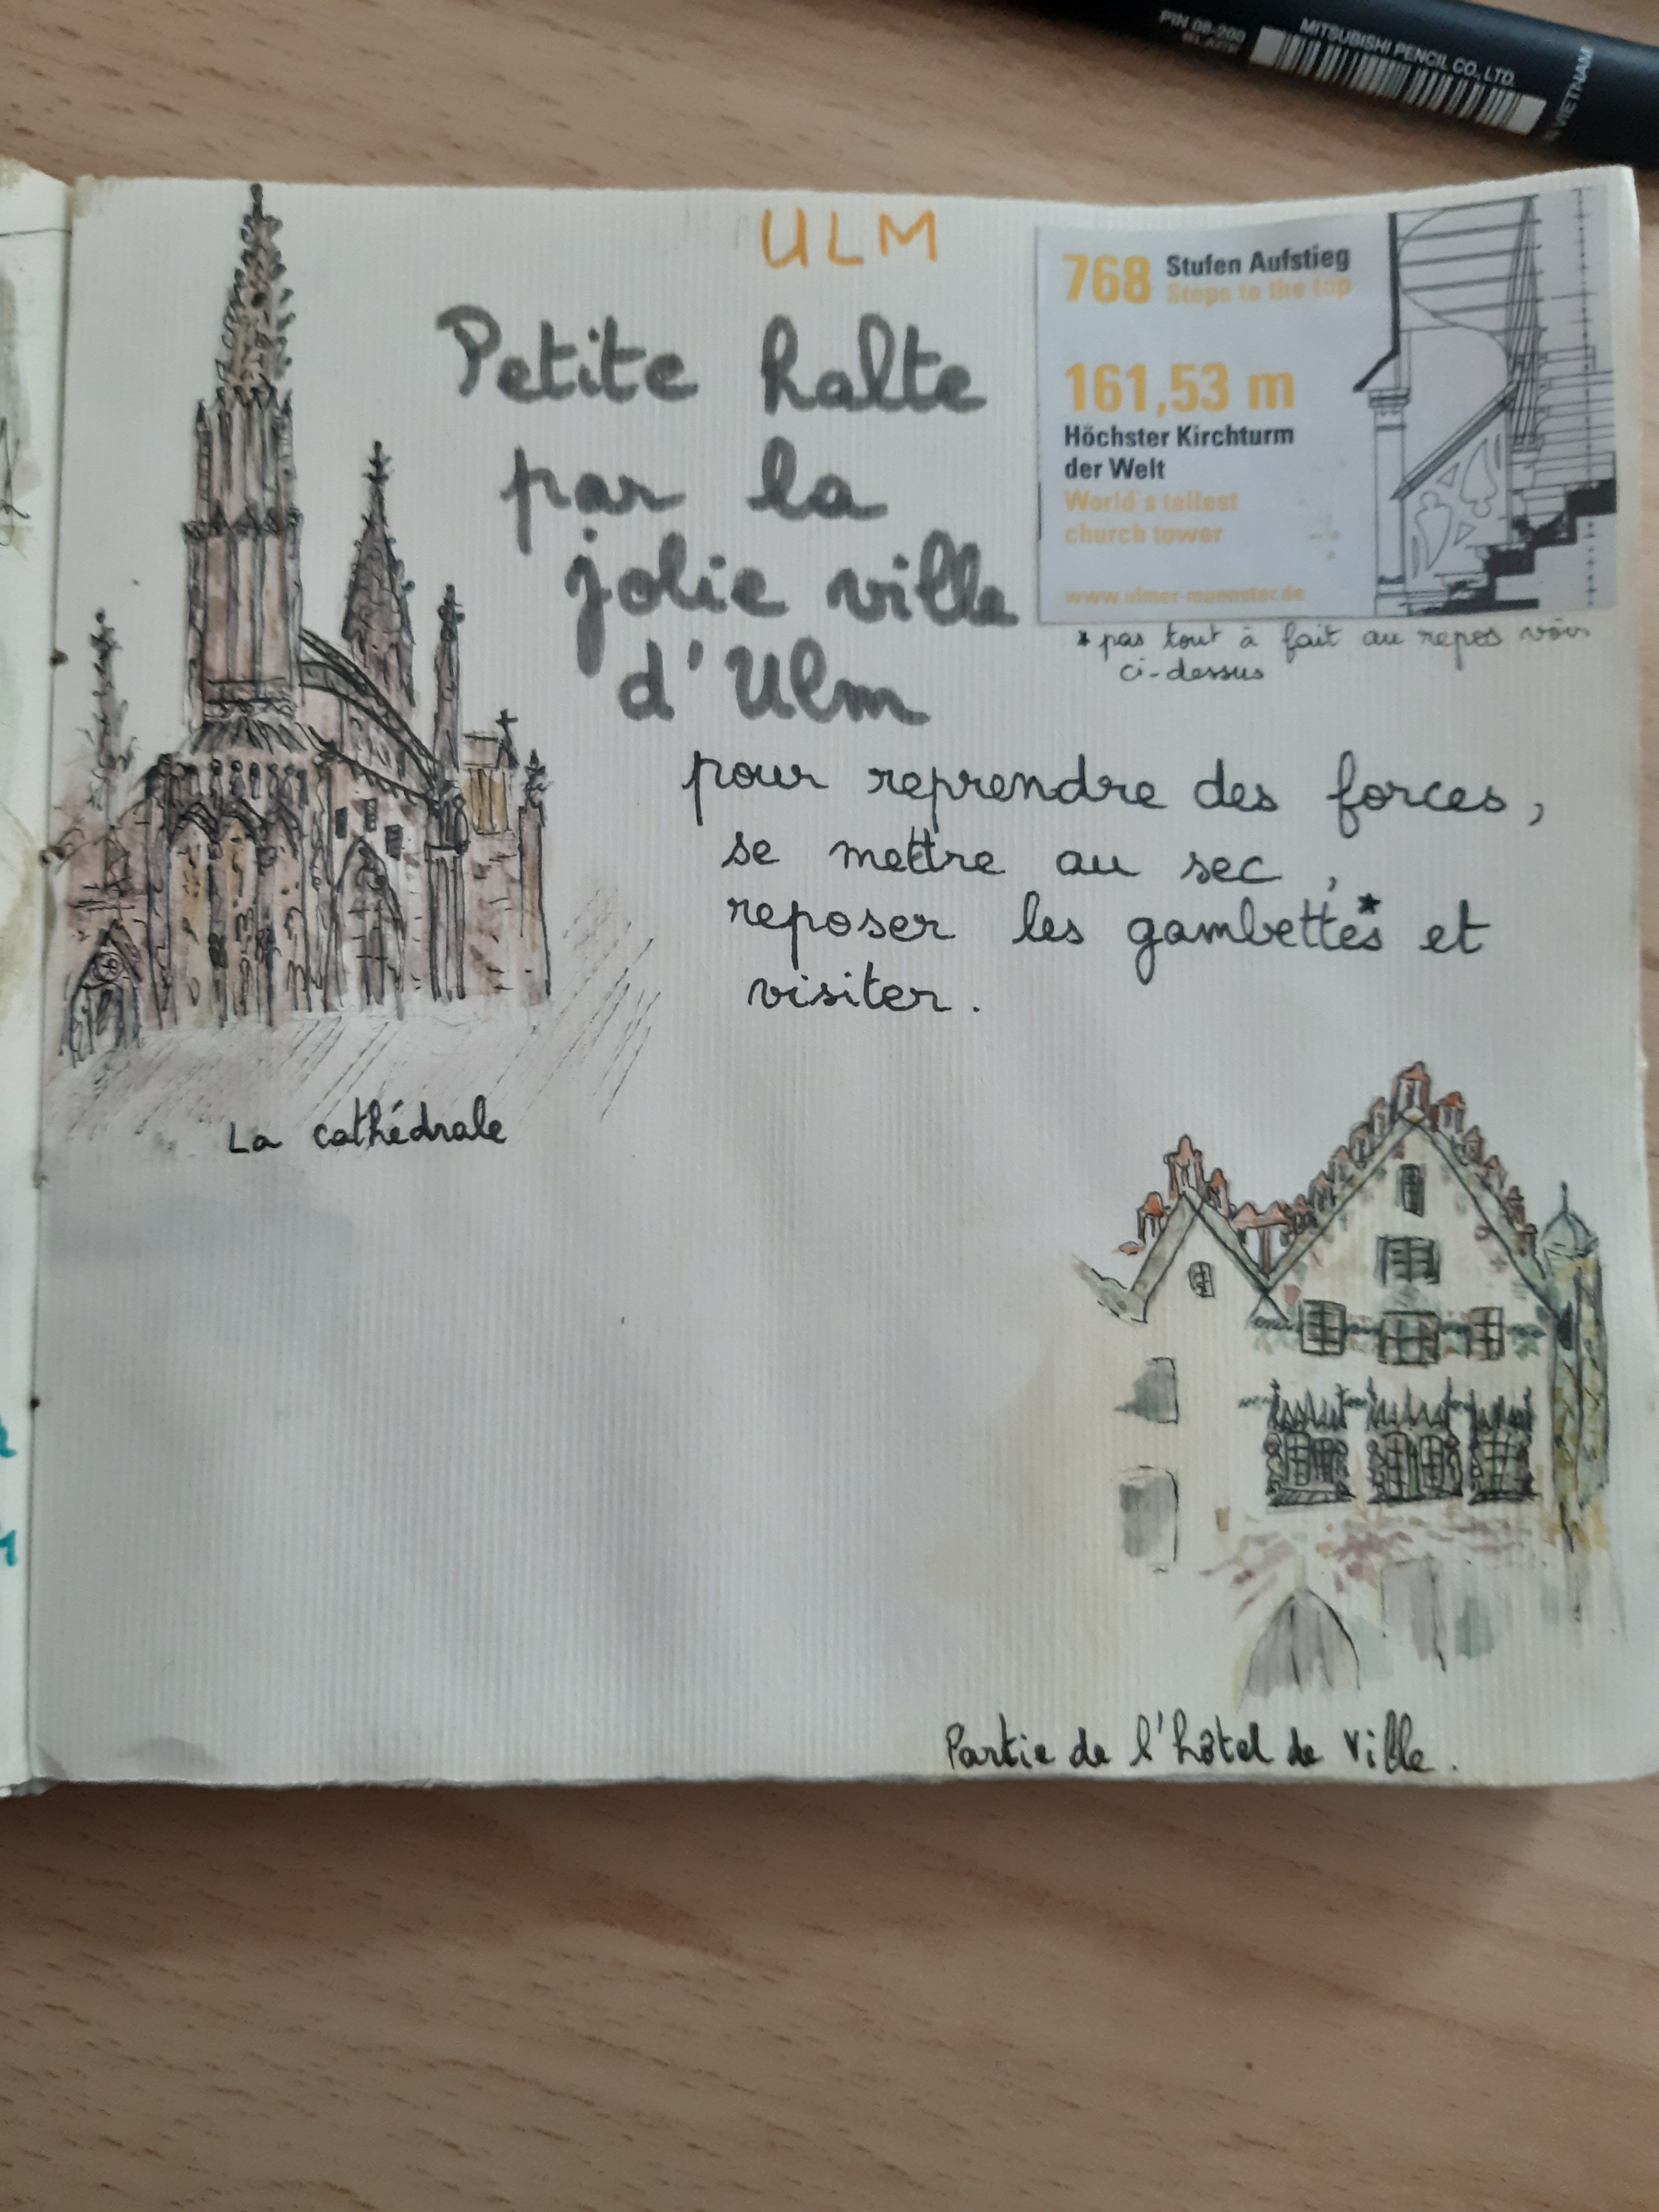 PIN 08-200
BLACK
MITSUBISHI PENCIL CO., LTD.
VIETNAM
ULM
Petite halte
par la
jolie ville
d'Ulm
768 Stufen Aufstieg
Steps to the top
161,53 m
Höchster Kirchturm
der Welt
World's tallest
church tower
www.ulmer-muenster.de
* pas tout à fait au repos voir
ci-dessus
pour reprendre des forces,
se mettre au sec,
reposer les gambettes* et
visiter.
La cathédrale
Partie de l'hôtel de Ville.